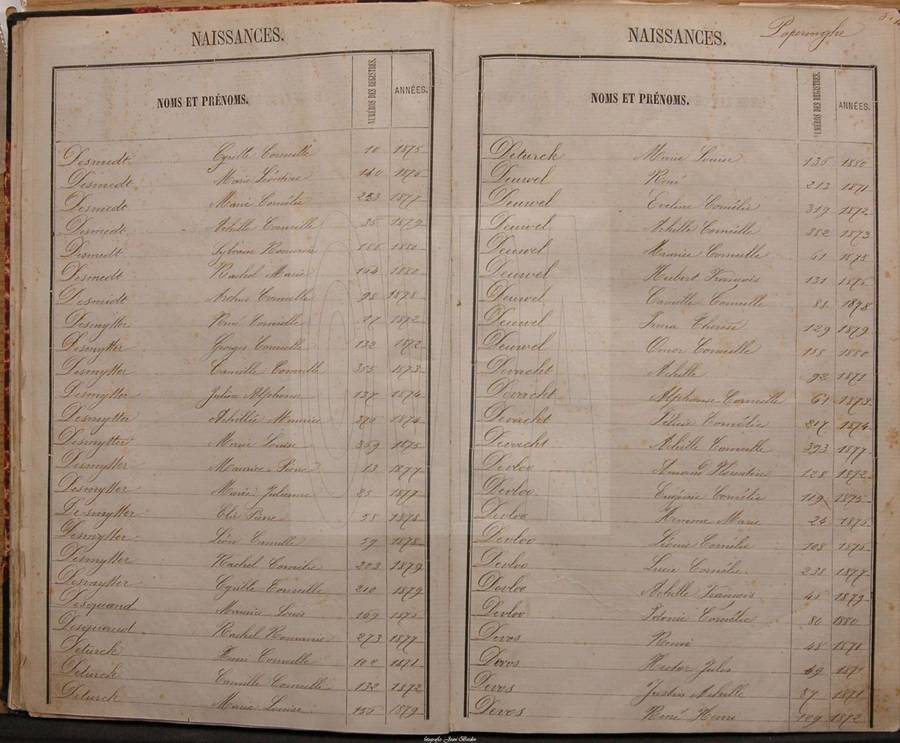 NAISSANCES.
NOMS ET PRÉNOMS. NUMÉROS DES REGISTRES. ANNÉES.
Desmedt Cyrille Corneille 10 1875
Desmedt Marie Léontine 140 1876
Desmedt Marie Cornélie 223 1877
Desmedt Achille Corneille 35 1879
Desmedt Sylvain 1880
Desmedt Rachel Marie 1880
Desmedt Arthur Corneille 98 1878
Desmytter René Corneille 27 1872
Desmytter Georges Corneille 132 1872
Desmytter Camille Corneille 355 1873
Desmytter Julien Alphonse 137 1874
Desmytter Maurice 1874
Desmytter Marie Louise 369 1875
Desmytter Maurice Pierre 13 1877
Desmytter Marie Julienne 25 1877
Desmytter Elie Pierre 58 1878
Desmytter Léon Camille 59 1878
Desmytter Rachel Cornélie 203 1879
Desmytter Cyrille Corneille 210 1879
Desquand Maurice Louis 169 1875
Desquand Rachel Romanie 273 1877
Deturck Corneille 1871
Deturck Camille Corneille 132 1872
Deturck Marie Louise 1879
NAISSANCES. Poperinghe
NOMS ET PRÉNOMS. NUMÉROS DES REGISTRES. ANNÉES.
Deturck Marie Louise 135 1880
Deuwel René 213 1871
Deuwel Eveline Cornélie 319 1872
Deuwel Achille Corneille 352 1873
Deuwel Maurice Corneille 61 1875
Deuwel Hubert François 131 1876
Deuwel Camille Corneille 88 1878
Deuwel Irma Thérèse 129 1879
Deuwel Omer Corneille 155 1880
Devacht Achille 92 1871
Devacht Alphonse Corneille 61 1873
Devacht Cornélie 217 1874
Devacht Achille Corneille 293 1877
Devloo Amand Florentin 128 1872
Devloo Eugénie Cornélie 119 1875
Devloo Marie 24 1876
Devloo Léonie Cornélie 108 1876
Devloo Lucie Cornélie 238 1877
Devloo Achille François 45 1879
Devloo Cornélie 80 1880
Devos Remi 48 1871
Devos Hector Jules 69 1871
Devos Justin Achille 87 1871
Devos René Henri 109 1872
fotografie Joan Bordin